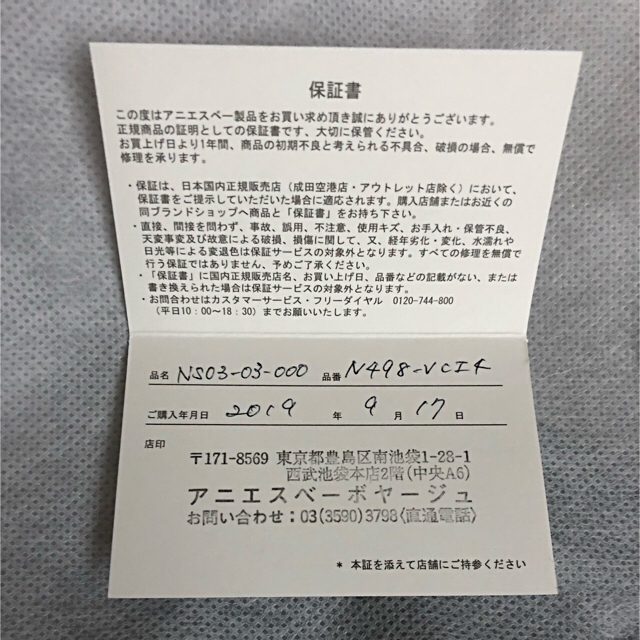 保証書
この度はアニエスベー製品をお買い求め頂き誠にありがとうございます。
正規商品の証明としての保証書です、大切に保管ください。
お買上げ日より1年間、商品の初期不良と考えられる不具合、破損の場合、無償で
修理を承ります。
・保証は、日本国内正規販売店（成田空港店・アウトレット店除く）において、
保証書をご提示していただいた場合に適応されます。購入店舗またはお近くの
同ブランドショップへ商品と「保証書」をお持ち下さい。
・直接、間接を問わず、事故、誤用、不注意、使用キズ、お手入れ・保管不良、
天変事変及び故意による破損、損傷に関して、又、経年劣化・変化、水濡れや
日光等による変退色は保証サービスの対象外となります。すべての修理を無償で
行う保証ではありません、予めご了承ください。
・「保証書」に国内正規販売店名、お買い上げ日、品番などの記載がない、または
書き換えられた場合は保証サービスの対象外となります。
・お問合わせはカスタマーサービス・フリーダイヤル 0120-744-800
（平日10：00〜18：30）までお願いいたします。
品名 NS03-03-000 品番 N498-VCI4
ご購入年月日 2019 年 9 月 17 日
店印
〒171-8569 東京都豊島区南池袋1-28-1
西武池袋本店2階(中央A6)
アニエスベーボヤージュ
お問い合わせ：03(3590)3798〈直通電話〉
* 本証を添えて店舗にご持参ください